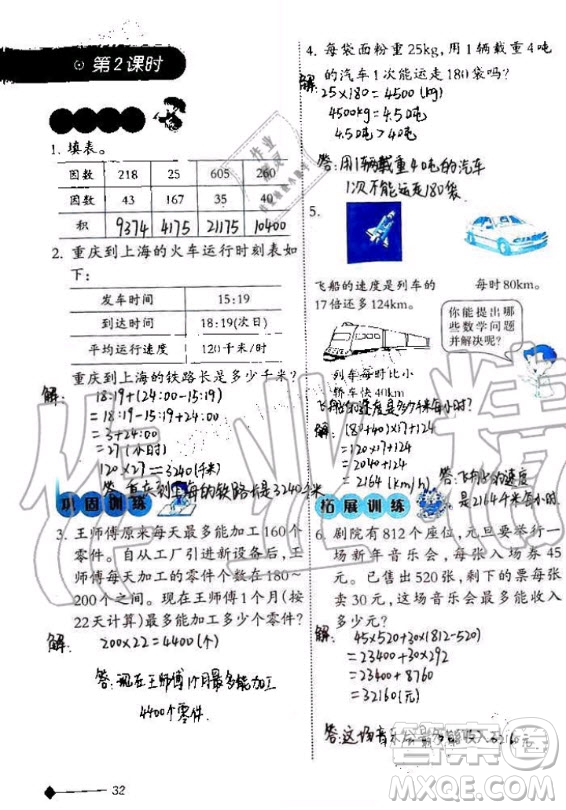 第2课时
1. 填表。
因数 218 25 605 260
因数 43 167 35 40
积 9374 4175 21175 10400
2. 重庆到上海的火车运行时刻表如
下：
发车时间 15:19
到达时间 18:19(次日)
平均运行速度 120千米/时
重庆到上海的铁路长是多少千米?
解: 18:19+(24:00-15:19)
=3+24:00
=27(小时)
120×27=3240(千米)
答: 重庆到上海的铁路长是3240千米
巩固训练
3. 王师傅原来每天最多能加工160个
零件。自从工厂引进新设备后，王
师傅每天最多能加工的零件个数在180~
200个之间。现在王师傅1个月(按
22天计算)最多能加工多少个零件?
解: 200×22=4400(个)
答: 现在王师傅1个月最多能加工
4400个零件
32
4. 每袋面粉重25kg,用1辆载重4吨
的汽车1次能运走180袋吗?
解: 25×180=4500(kg)
4500kg=4.50吨
4.50吨>4吨
答: 用1辆载重4吨的汽车
1次不能运走180袋
5.
飞船的速度是列车的
17倍还多124km。
每时80km。
你能提出哪
些数学问题
并解决呢?
列车每时比小
轿车快40km
飞船的速度是多少千米每小时?
解: (80+40)×17+124
=120×17+124
=2040+124
=2164(km/h)
答: 飞船的速度
是2164千米每小时
拓展训练
6. 剧院有812个座位,元旦举行一
场新年音乐会,每张入场券45
元。已售出520张,剩下的票每张
卖30元,这场音乐会最多能收入
多少元?
解: 45×520+30×(812-520)
=23400+30×292
=23400+8760
=32160(元)
答: 这场音乐会最多能收入32160元
作业精灵
MXQE.COM